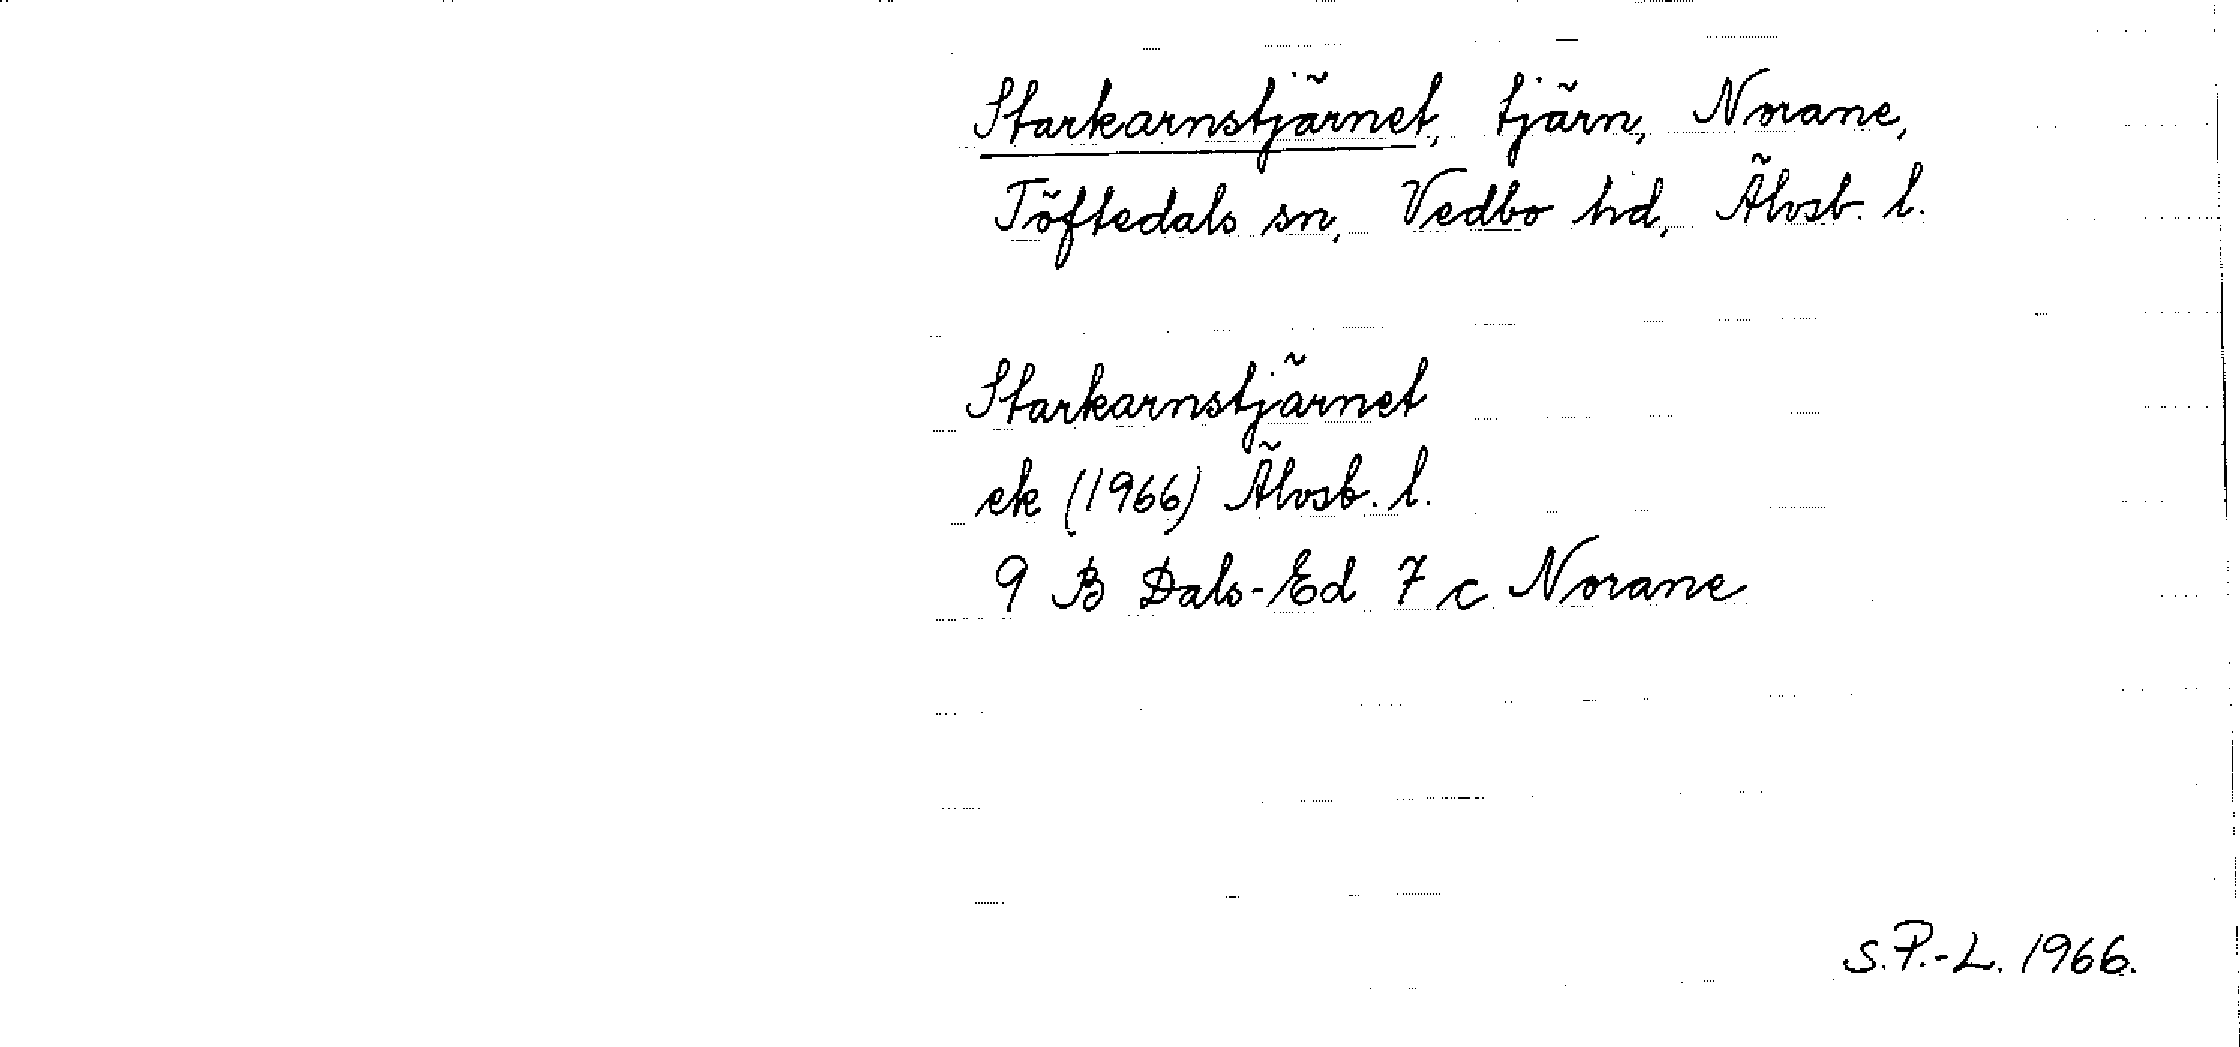 Starkarnstjärnet, tjärn, Norane,
Töftedals sn, Vedbo hd, Älvsb. l.
Starkarnstjärnet
ek (1966) Älvsb. l.
9 B Dals-Ed 7 c Norane
S.P.-L. 1966.